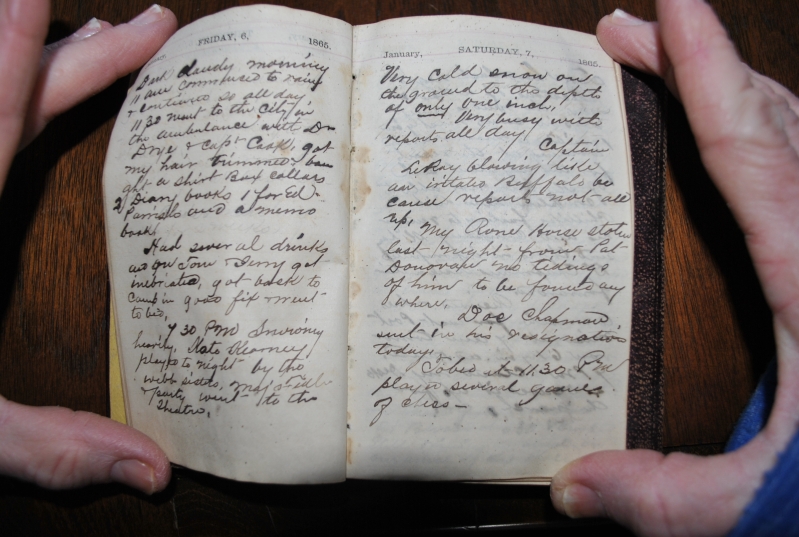 FRIDAY, 6, 1865.
Dark cloudy morning
11 am commenced to rain
& continued so all day
11 30 went to the City in
the ambulance with Dr
Drye & Capt Cook, got
my hair trimmed bou
ght a shirt Box collars
2 Diary books 1 for Ed
and a memo
book
Had several drinks
and Jerry got
inebriated, got back to
Camp in good fix & went
to bed,
7 30 PM Snowing
heavily, Kate Kearney
played to night by the
Webb sisters, Maj
& party went to the
theatre,
January, SATURDAY, 7, 1865.
Very cold snow on
the ground to the depth
of only one inch,
Very busy with
reports all day
Captain
LeRoy blowing like
an irritated Buffalo be
cause reports not all
up, My Roan Horse stolen
last night from Pat
Donovan no tidings
of him to be found any
where,
Doc Chapman
sent in his resignation
today,
To bed at 11 30 PM
played several games
of chess —